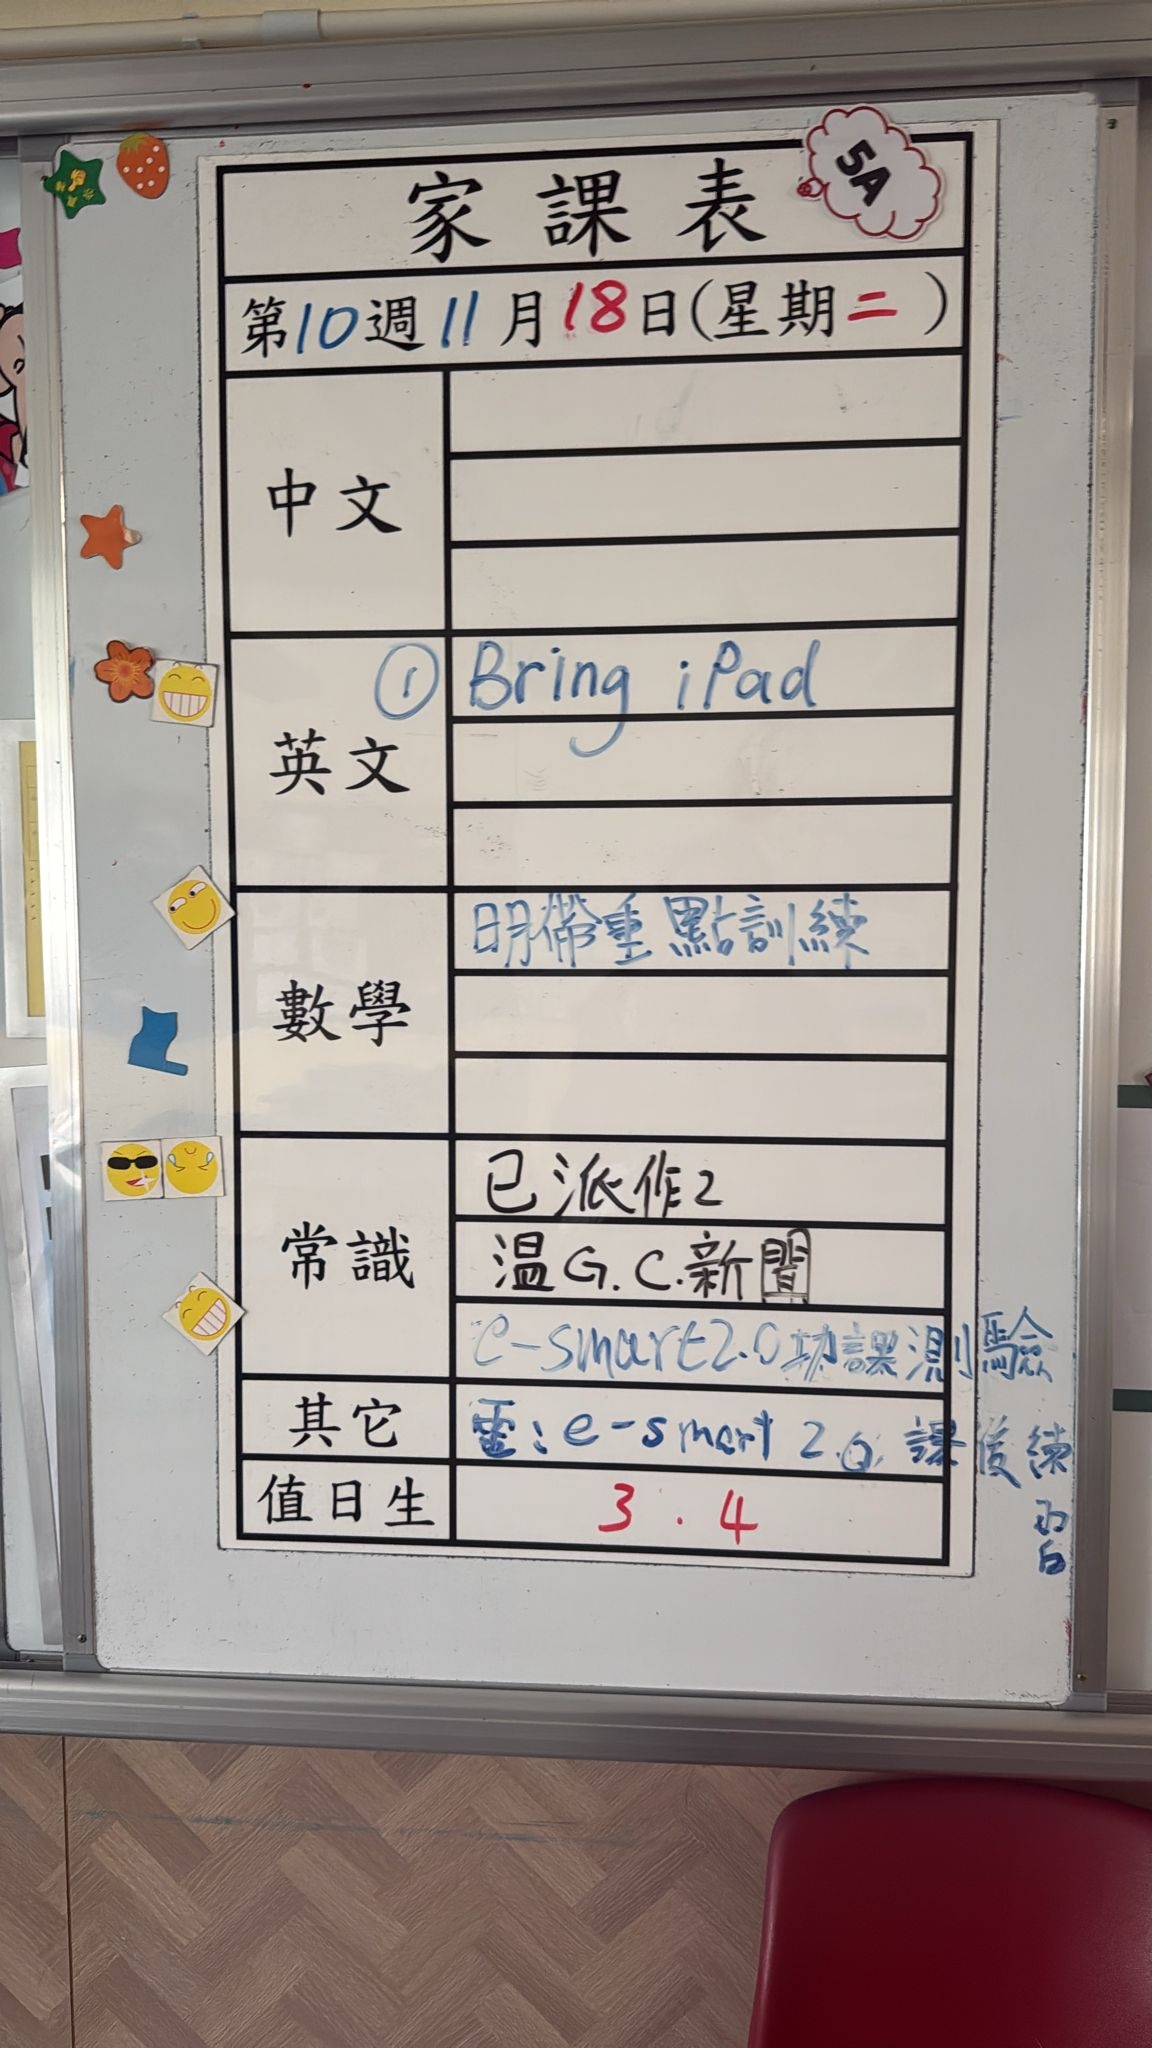 5A
家課表
第10週11月18日(星期二)
中文
英文
① Bring iPad
數學
明帶重點訓練
常識
已派作2
温G.C.新聞
e-smart2.0功課測驗
其它
電:e-smart 2.0 課後練習
值日生
3.4